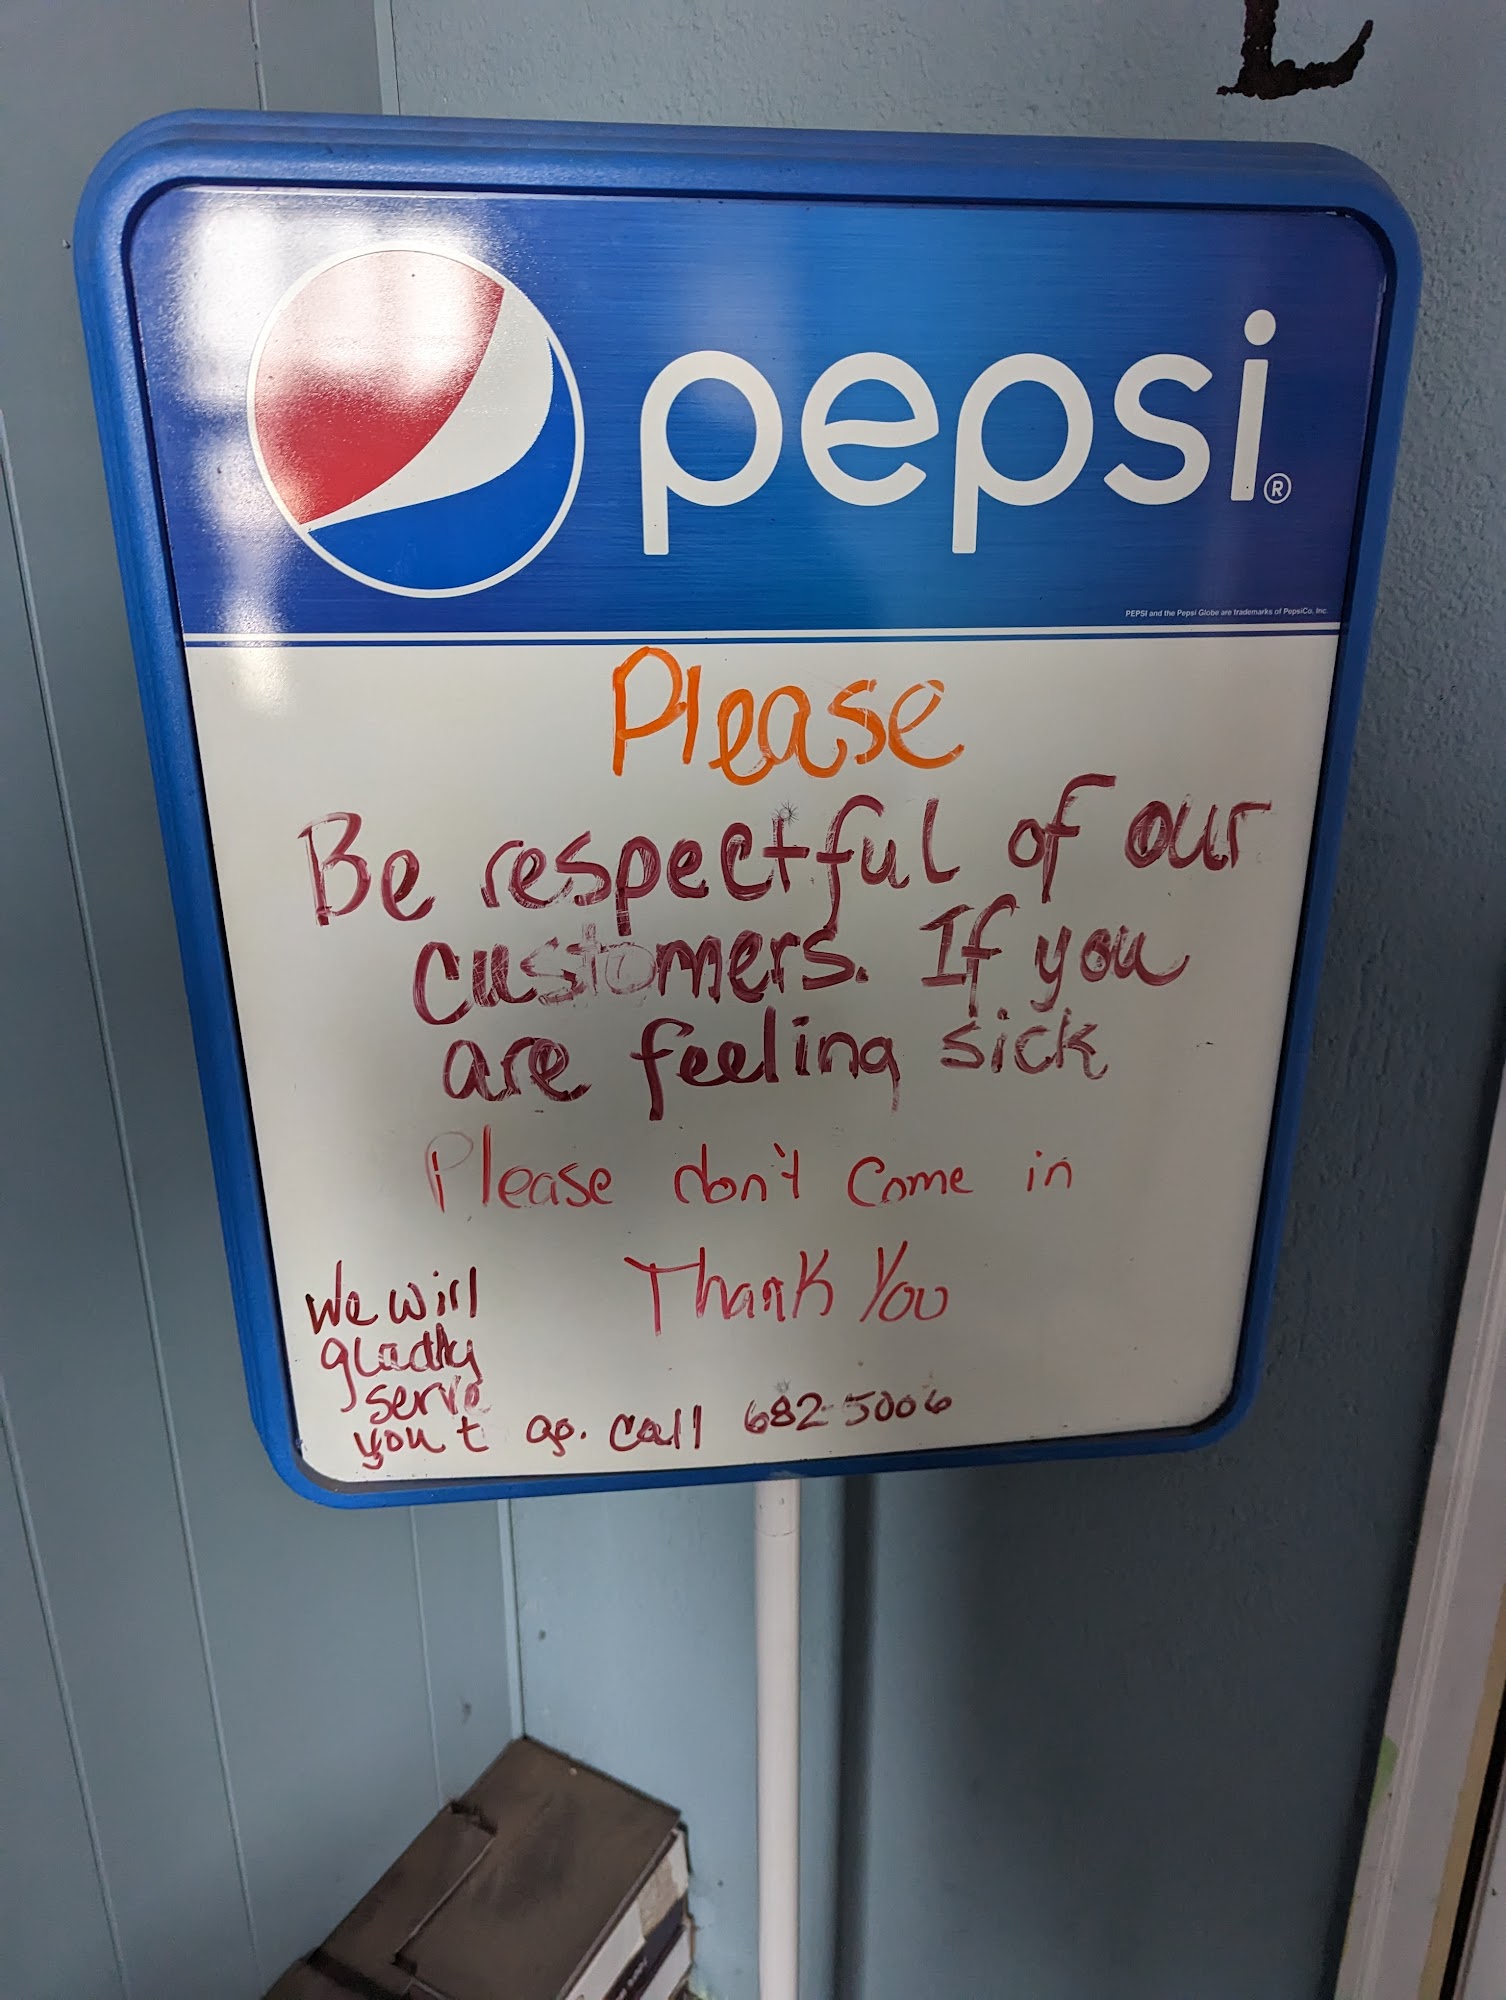 L
pepsi®
PEPSI and the Pepsi Globe are trademarks of PepsiCo, Inc.
Please
Be respectful of our
customers. If you
are feeling sick
Please don't come in
Thank You
We will
gladly
serve
you t go. call 682-5006